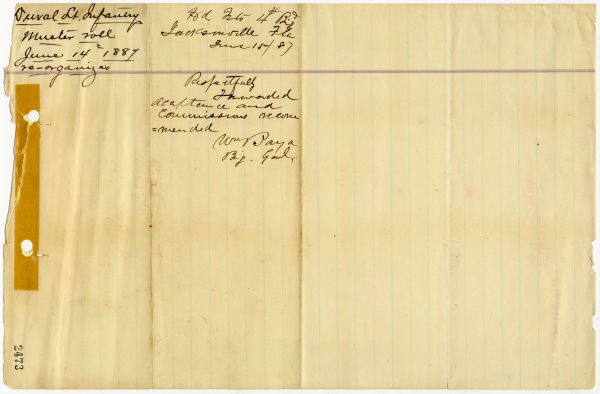 Duval Lt. Infantry
Muster roll
June 14" 1887
re-organized
Hd Qts 4th Bd
Jacksonville Fla
June 15/87
Respectfully
Forwarded
acceptance and
Commissions recom
=mended
Wm Baya
Brig. Genl.
2473